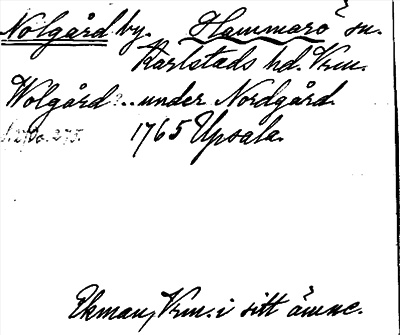 Nolgård by. Hammarö sn.
Karlstads hd. Vrm.
Wolgård?.. under Nordgård.
1765 Upsala.
Ekman, Vrm. i sitt ämne.